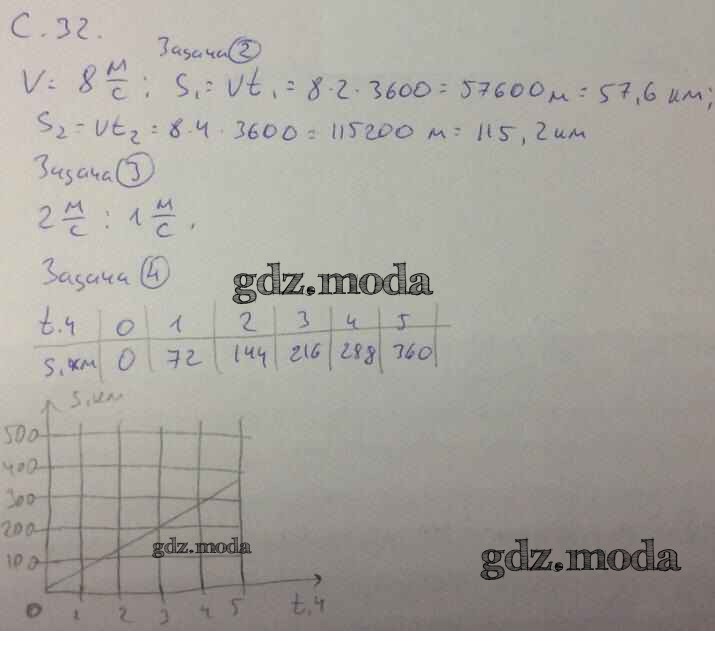 С. 32.
Задача ②
V = 8 м/с ; S₁ = Vt₁ = 8·2·3600 = 57600 м = 57,6 км;
S₂ = Vt₂ = 8·4·3600 = 115200 м = 115,2 км
Задача ③
2 м/с ; 1 м/с.
Задача ④
gdz.moda
t.ч 0 1 2 3 4 5
s.км 0 72 144 216 288 360
s.км
500
400
300
200
100
gdz.moda
gdz.moda
0 1 2 3 4 5 t.ч